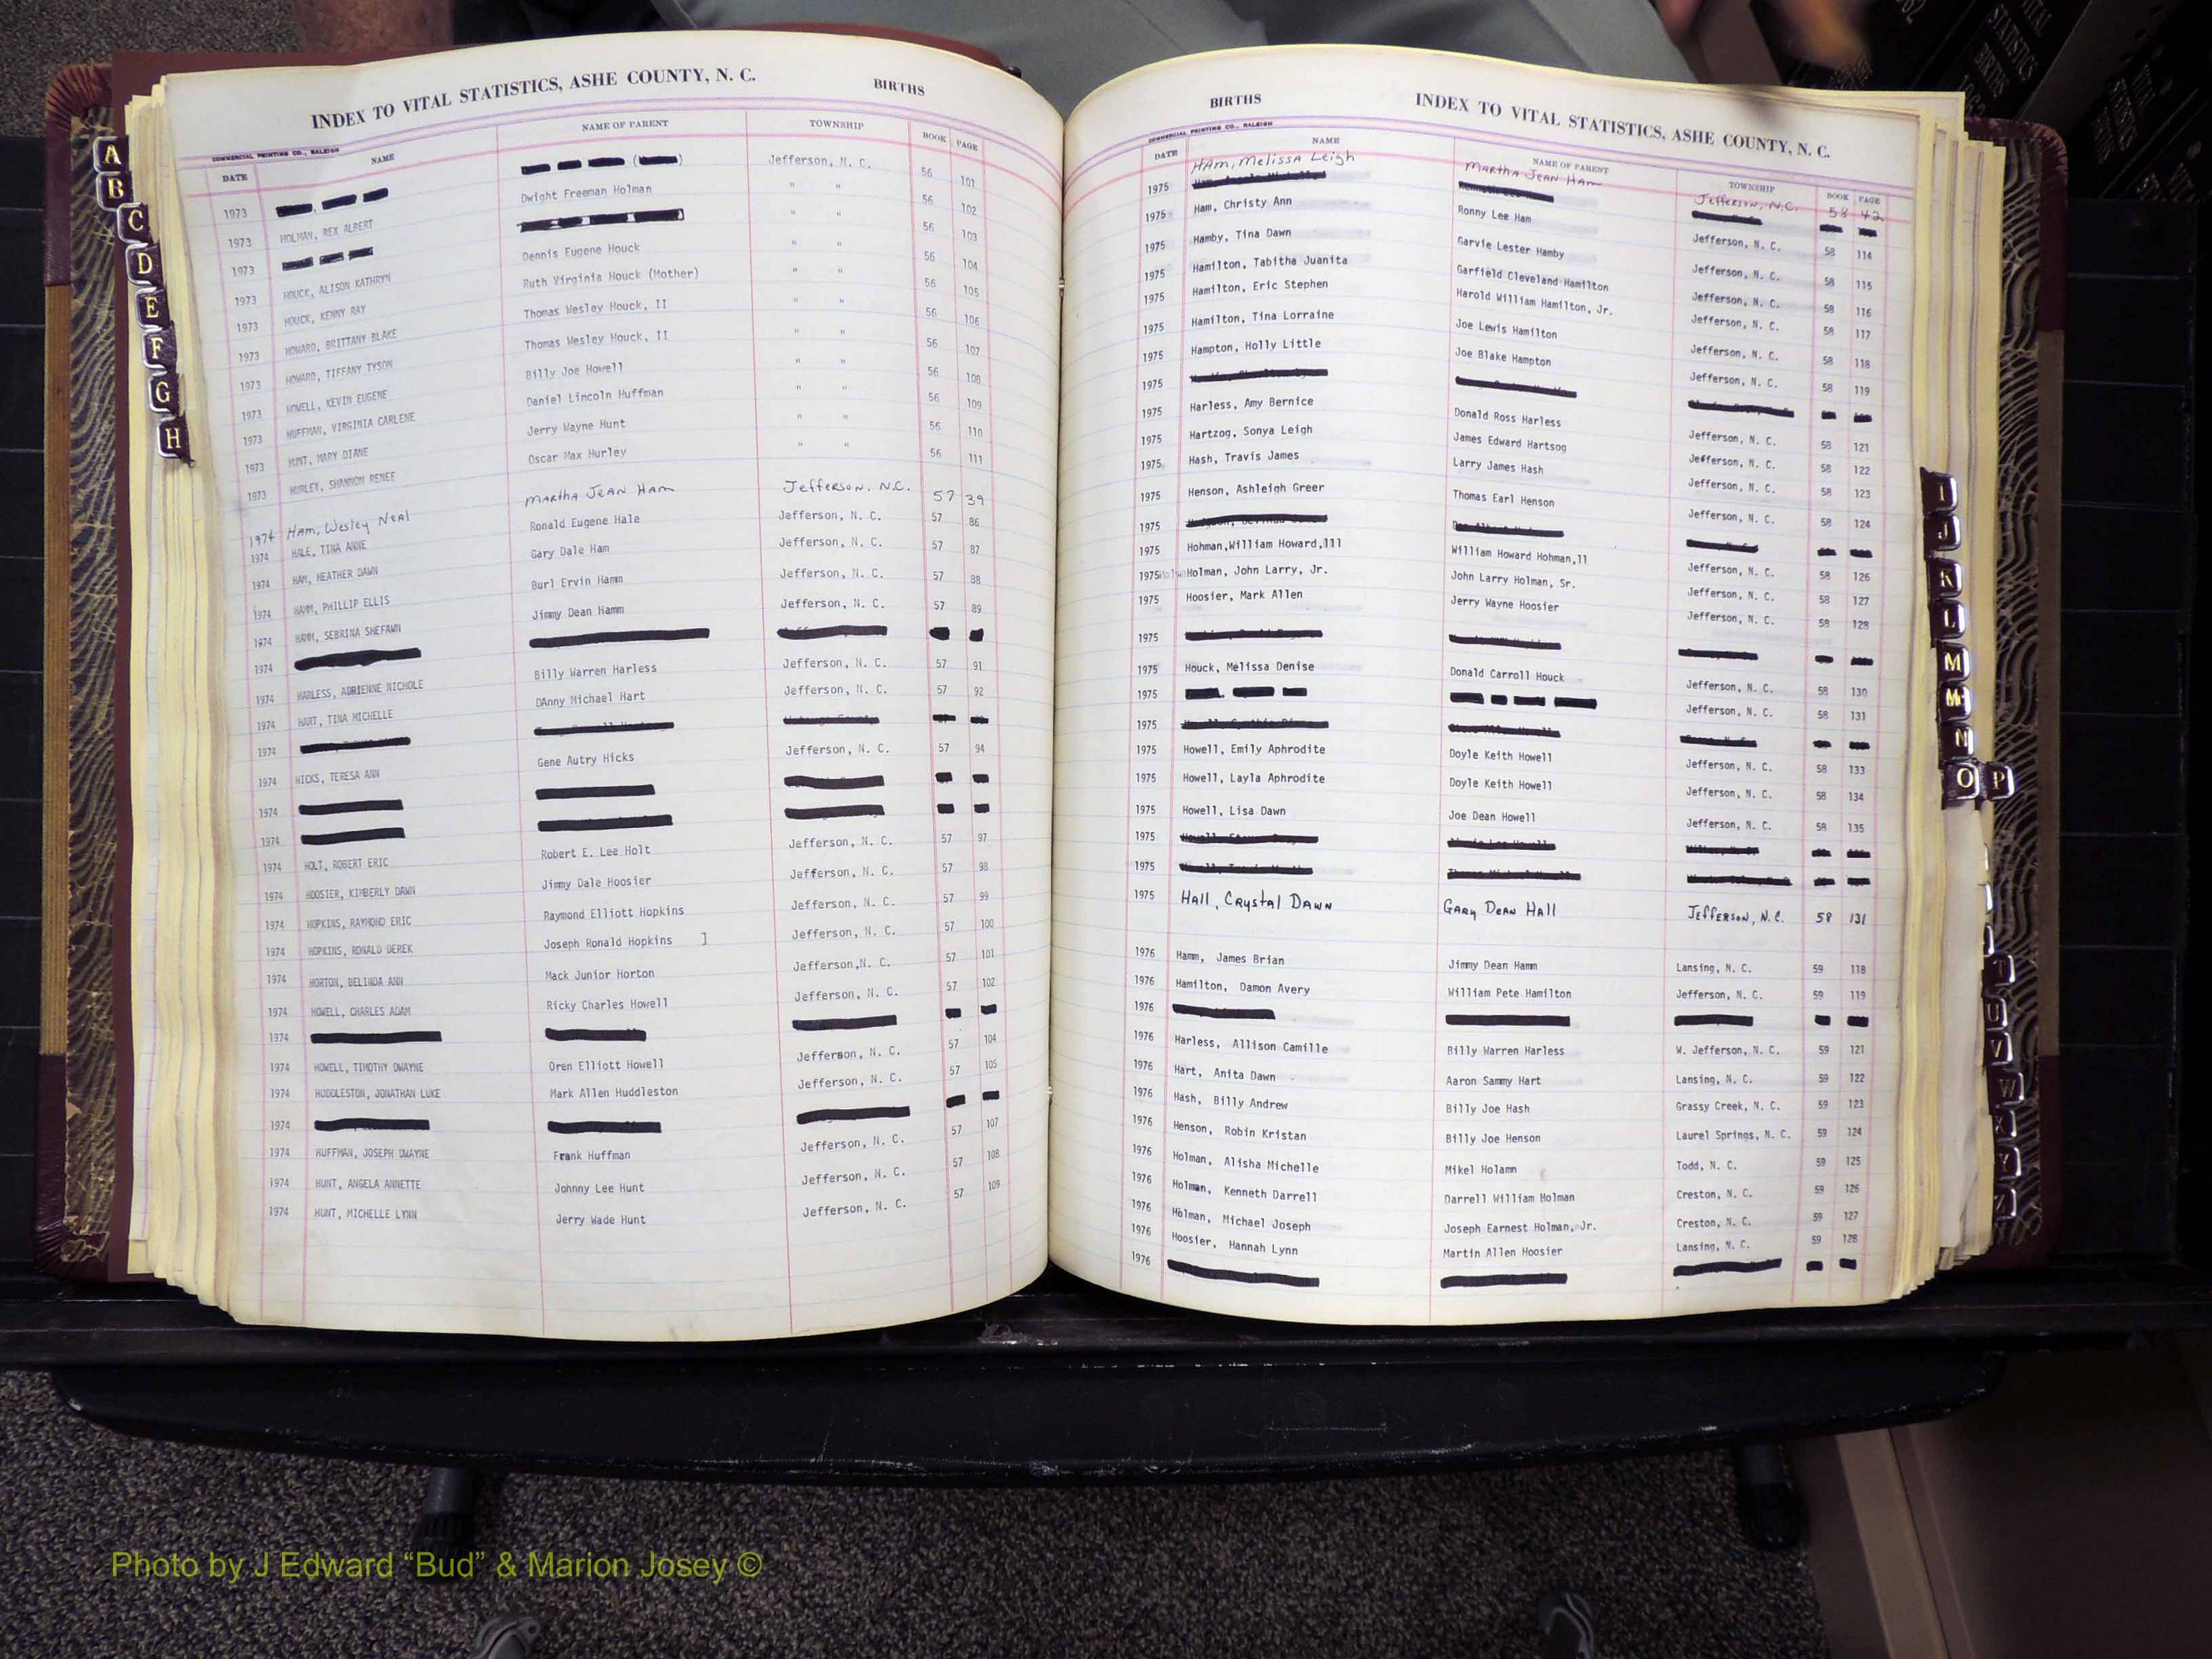 INDEX TO VITAL STATISTICS, ASHE COUNTY, N. C. BIRTHS
COMMERCIAL PRINTING CO., RALEIGH
DATE NAME NAME OF PARENT TOWNSHIP BOOK PAGE
1973 Jefferson, N. C. 56 101
1973 HOLMAN, REX ALBERT Dwight Freeman Holman " " 56 102
1973 " " 56 103
1973 HOUCK, ALISON KATHRYN Dennis Eugene Houck " " 56 104
1973 HOUCK, KENNY RAY Ruth Virginia Houck (Mother) " " 56 105
1973 HOWARD, BRITTANY BLAKE Thomas Wesley Houck, II " " 56 106
1973 HOWARD, TIFFANY TYSON Thomas Wesley Houck, II " " 56 107
1973 HOWELL, KEVIN EUGENE Billy Joe Howell " " 56 108
1973 HUFFMAN, VIRGINIA CARLENE Daniel Lincoln Huffman " " 56 109
1973 HUNT, MARY DIANE Jerry Wayne Hunt " " 56 110
1973 HURLEY, SHANNON RENEE Oscar Max Hurley " " 56 111
1974 Ham, Wesley Neal Martha Jean Ham Jefferson, N.C. 57 39
1974 HALE, TINA ANNE Ronald Eugene Hale Jefferson, N. C. 57 86
1974 HAM, HEATHER DAWN Gary Dale Ham Jefferson, N. C. 57 87
1974 HAMM, PHILLIP ELLIS Burl Ervin Hamm Jefferson, N. C. 57 88
1974 HAMM, SEBRINA SHEFAWN Jimmy Dean Hamm Jefferson, N. C. 57 89
1974
1974 HARLESS, ADRIENNE NICHOLE Billy Warren Harless Jefferson, N. C. 57 91
1974 HART, TINA MICHELLE DAnny Michael Hart Jefferson, N. C. 57 92
1974
1974 HICKS, TERESA ANN Gene Autry Hicks Jefferson, N. C. 57 94
1974
1974
1974 HOLT, ROBERT ERIC Robert E. Lee Holt Jefferson, N. C. 57 97
1974 HOOSIER, KIMBERLY DAWN Jimmy Dale Hoosier Jefferson, N. C. 57 98
1974 HOPKINS, RAYMOND ERIC Raymond Elliott Hopkins Jefferson, N. C. 57 99
1974 HOPKINS, RONALD DEREK Joseph Ronald Hopkins ] Jefferson, N. C. 57 100
1974 HORTON, BELINDA ANN Mack Junior Horton Jefferson,N. C. 57 101
1974 HOWELL, CHARLES ADAM Ricky Charles Howell Jefferson, N. C. 57 102
1974
1974 HOWELL, TIMOTHY DWAYNE Oren Elliott Howell Jefferson, N. C. 57 104
1974 HUDDLESTON, JONATHAN LUKE Mark Allen Huddleston Jefferson, N. C. 57 105
1974
1974 HUFFMAN, JOSEPH DWAYNE Frank Huffman Jefferson, N. C. 57 107
1974 HUNT, ANGELA ANNETTE Johnny Lee Hunt Jefferson, N. C. 57 108
1974 HUNT, MICHELLE LYNN Jerry Wade Hunt Jefferson, N. C. 57 109
BIRTHS INDEX TO VITAL STATISTICS, ASHE COUNTY, N. C.
COMMERCIAL PRINTING CO., RALEIGH
DATE NAME NAME OF PARENT TOWNSHIP BOOK PAGE
1975 HAm, Melissa Leigh Martha Jean Ham Jefferson, N.C. 58 42
1975 Ham, Christy Ann Ronny Lee Ham Jefferson, N. C. 58 114
1975 Hamby, Tina Dawn Garvie Lester Hamby Jefferson, N. C. 58 115
1975 Hamilton, Tabitha Juanita Garfield Cleveland Hamilton Jefferson, N. C. 58 116
1975 Hamilton, Eric Stephen Harold William Hamilton, Jr. Jefferson, N. C. 58 117
1975 Hamilton, Tina Lorraine Joe Lewis Hamilton Jefferson, N. C. 58 118
1975 Hampton, Holly Little Joe Blake Hampton Jefferson, N. C. 58 119
1975
1975 Harless, Amy Bernice Donald Ross Harless Jefferson, N. C. 58 121
1975 Hartzog, Sonya Leigh James Edward Hartsog Jefferson, N. C. 58 122
1975 Hash, Travis James Larry James Hash Jefferson, N. C. 58 123
1975 Henson, Ashleigh Greer Thomas Earl Henson Jefferson, N. C. 58 124
1975
1975 Hohman,William Howard,111 William Howard Hohman,11 Jefferson, N. C. 58 126
1975 Holman, John Larry, Jr. John Larry Holman, Sr. Jefferson, N. C. 58 127
1975 Hoosier, Mark Allen Jerry Wayne Hoosier Jefferson, N. C. 58 128
1975
1975 Houck, Melissa Denise Donald Carroll Houck Jefferson, N. C. 58 130
1975 Jefferson, N. C. 58 131
1975
1975 Howell, Emily Aphrodite Doyle Keith Howell Jefferson, N. C. 58 133
1975 Howell, Layla Aphrodite Doyle Keith Howell Jefferson, N. C. 58 134
1975 Howell, Lisa Dawn Joe Dean Howell Jefferson, N. C. 58 135
1975
1975
1975 Hall, Crystal Dawn Gary Dean Hall Jefferson, N.C. 58 131
1976 Hamm, James Brian Jimmy Dean Hamm Lansing, N. C. 59 118
1976 Hamilton, Damon Avery William Pete Hamilton Jefferson, N. C. 59 119
1976
1976 Harless, Allison Camille Billy Warren Harless W. Jefferson, N. C. 59 121
1976 Hart, Anita Dawn Aaron Sammy Hart Lansing, N. C. 59 122
1976 Hash, Billy Andrew Billy Joe Hash Grassy Creek, N. C. 59 123
1976 Henson, Robin Kristan Billy Joe Henson Laurel Springs, N. C. 59 124
1976 Holman, Alisha Michelle Mikel Holamn Todd, N. C. 59 125
1976 Holman, Kenneth Darrell Darrell William Holman Creston, N. C. 59 126
1976 Holman, Michael Joseph Joseph Earnest Holman, Jr. Creston, N. C. 59 127
1976 Hoosier, Hannah Lynn Martin Allen Hoosier Lansing, N. C. 59 128
1976
A
B
C
D
E
F
G
H
I
J
K
L
M
M
N
O P
T
U
V
W
X
Y
Z
Photo by J Edward “Bud” & Marion Josey ©